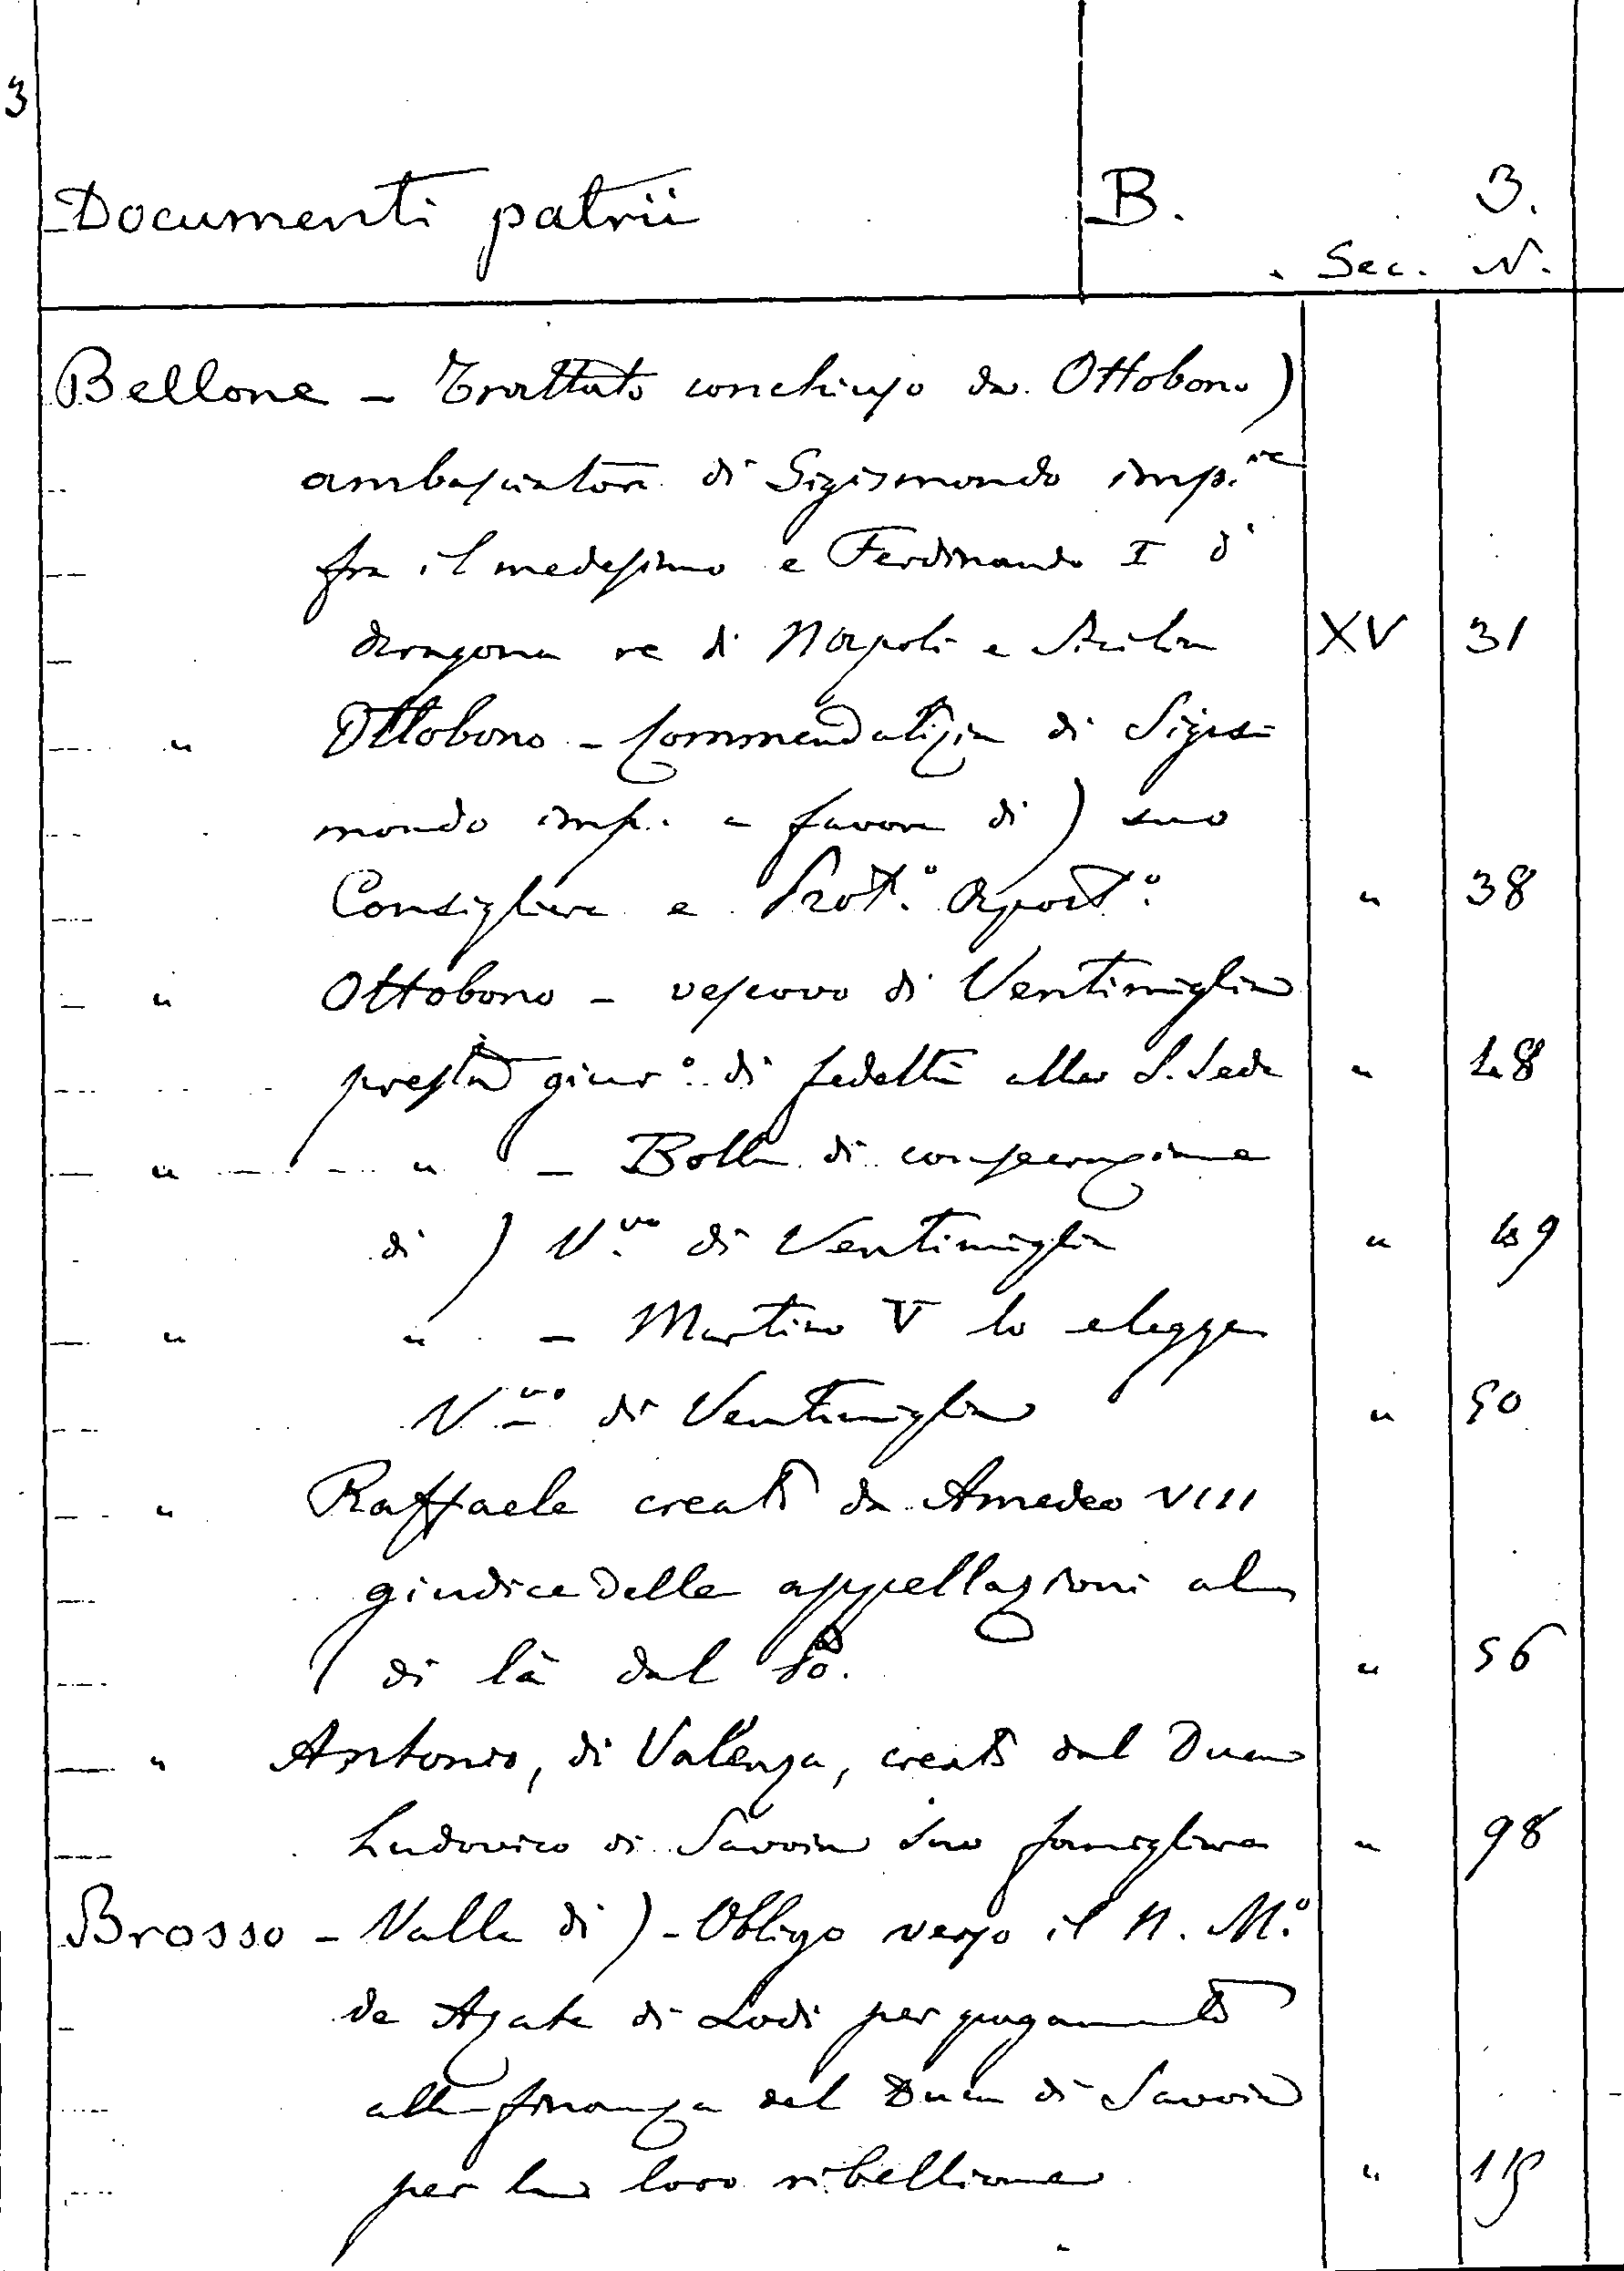 3
Documenti patrii B. 3.
Sec. N.
Bellone - Trattato conchiuso da Ottobono)
ambasciatore di Sigismondo imp.re
fra il medesimo e Ferdinando I d'
Aragona re di Napoli e Sicilia XV 31
" Ottobono - Commendatizia di Sigis=
mondo imp. a favore di ) suo
Consigliere e Prot.o Apost.o " 38
" Ottobono - vescovo di Ventimiglia
presta giur.o di fedeltà alla S. Sede " 48
" " - Bolla di consecrazione
di ) V.vo di Ventimiglia " 49
" " - Martino V lo elegge
V.vo di Ventimiglia " 50
" Raffaele creato da Amedeo VIII
giudice delle appellazioni al
di là dal Po. " 56
" Antonio, di Valenza, creato dal Duca
Ludovico di Savoia suo famigliare " 98
Brosso - Valle di ) - Obbligo verso il N. M.o
de Agata di Lodi per pagamento
alla finanza del Duca di Savoia
per la loro ribellione " 115